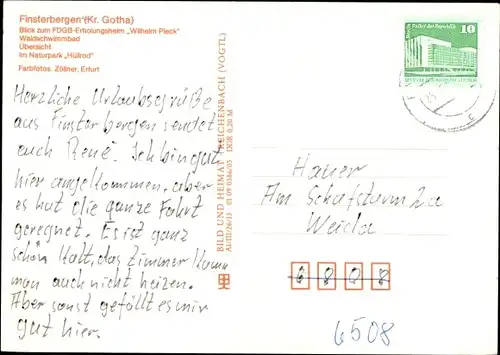 Finsterbergen (Kr. Gotha)
Blick zum FDGB-Erholungsheim „Wilhelm Pieck"
Waldschwimmbad
Übersicht
Im Naturpark „Hüllrod"
Farbfotos: Zöllner, Erfurt
Herzliche Urlaubsgrüße
aus Finsterbergen sendet
auch René. Ich bin gut
hier angekommen, aber
es hat die ganze Fahrt
geregnet. Es ist ganz
schön kalt, das Zimmer kann
man auch nicht heizen.
Aber sonst gefällt es mir
gut hier.
BILD UND HEIMAT REICHENBACH (VOGTL)
A1/III/26/13 01 09 0386/05 DDR 0,20 M
Palast der Republik
10
Hauer
Am Schafsturm 2a
Weida
6808
6508